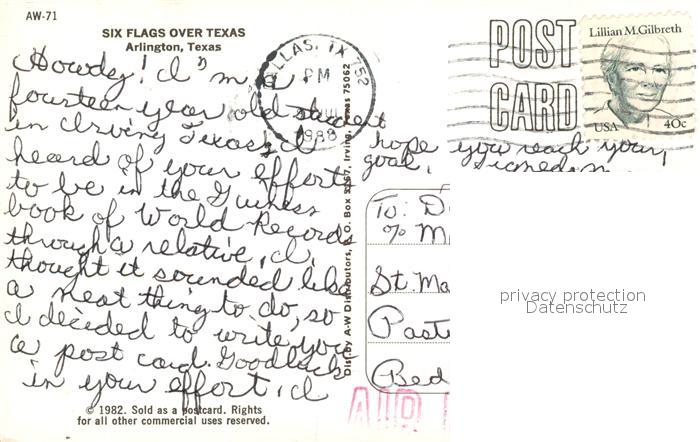 AW-71
SIX FLAGS OVER TEXAS
Arlington, Texas
Howdy! I'm a
fourteen year old student
in Irving Texas, I
heard of your efforts
to be in the Guiness
book of World Records
through a relative, I
thought it sounded like
a neat thing to do, so
I decided to write you
a post card. Good luck
in your effort, I
hope you reach your
goal,
© 1982. Sold as a postcard. Rights
for all other commercial uses reserved.
Dist. by A-W Distributors, P.O. Box 5267, Irving, Texas 75062
DALLAS, TX 752
PM
1988
POST
CARD
Lillian M. Gilbreth
USA 40c
To: D
% M
St. Ma
Past
Bed
AIR
privacy protection
Datenschutz